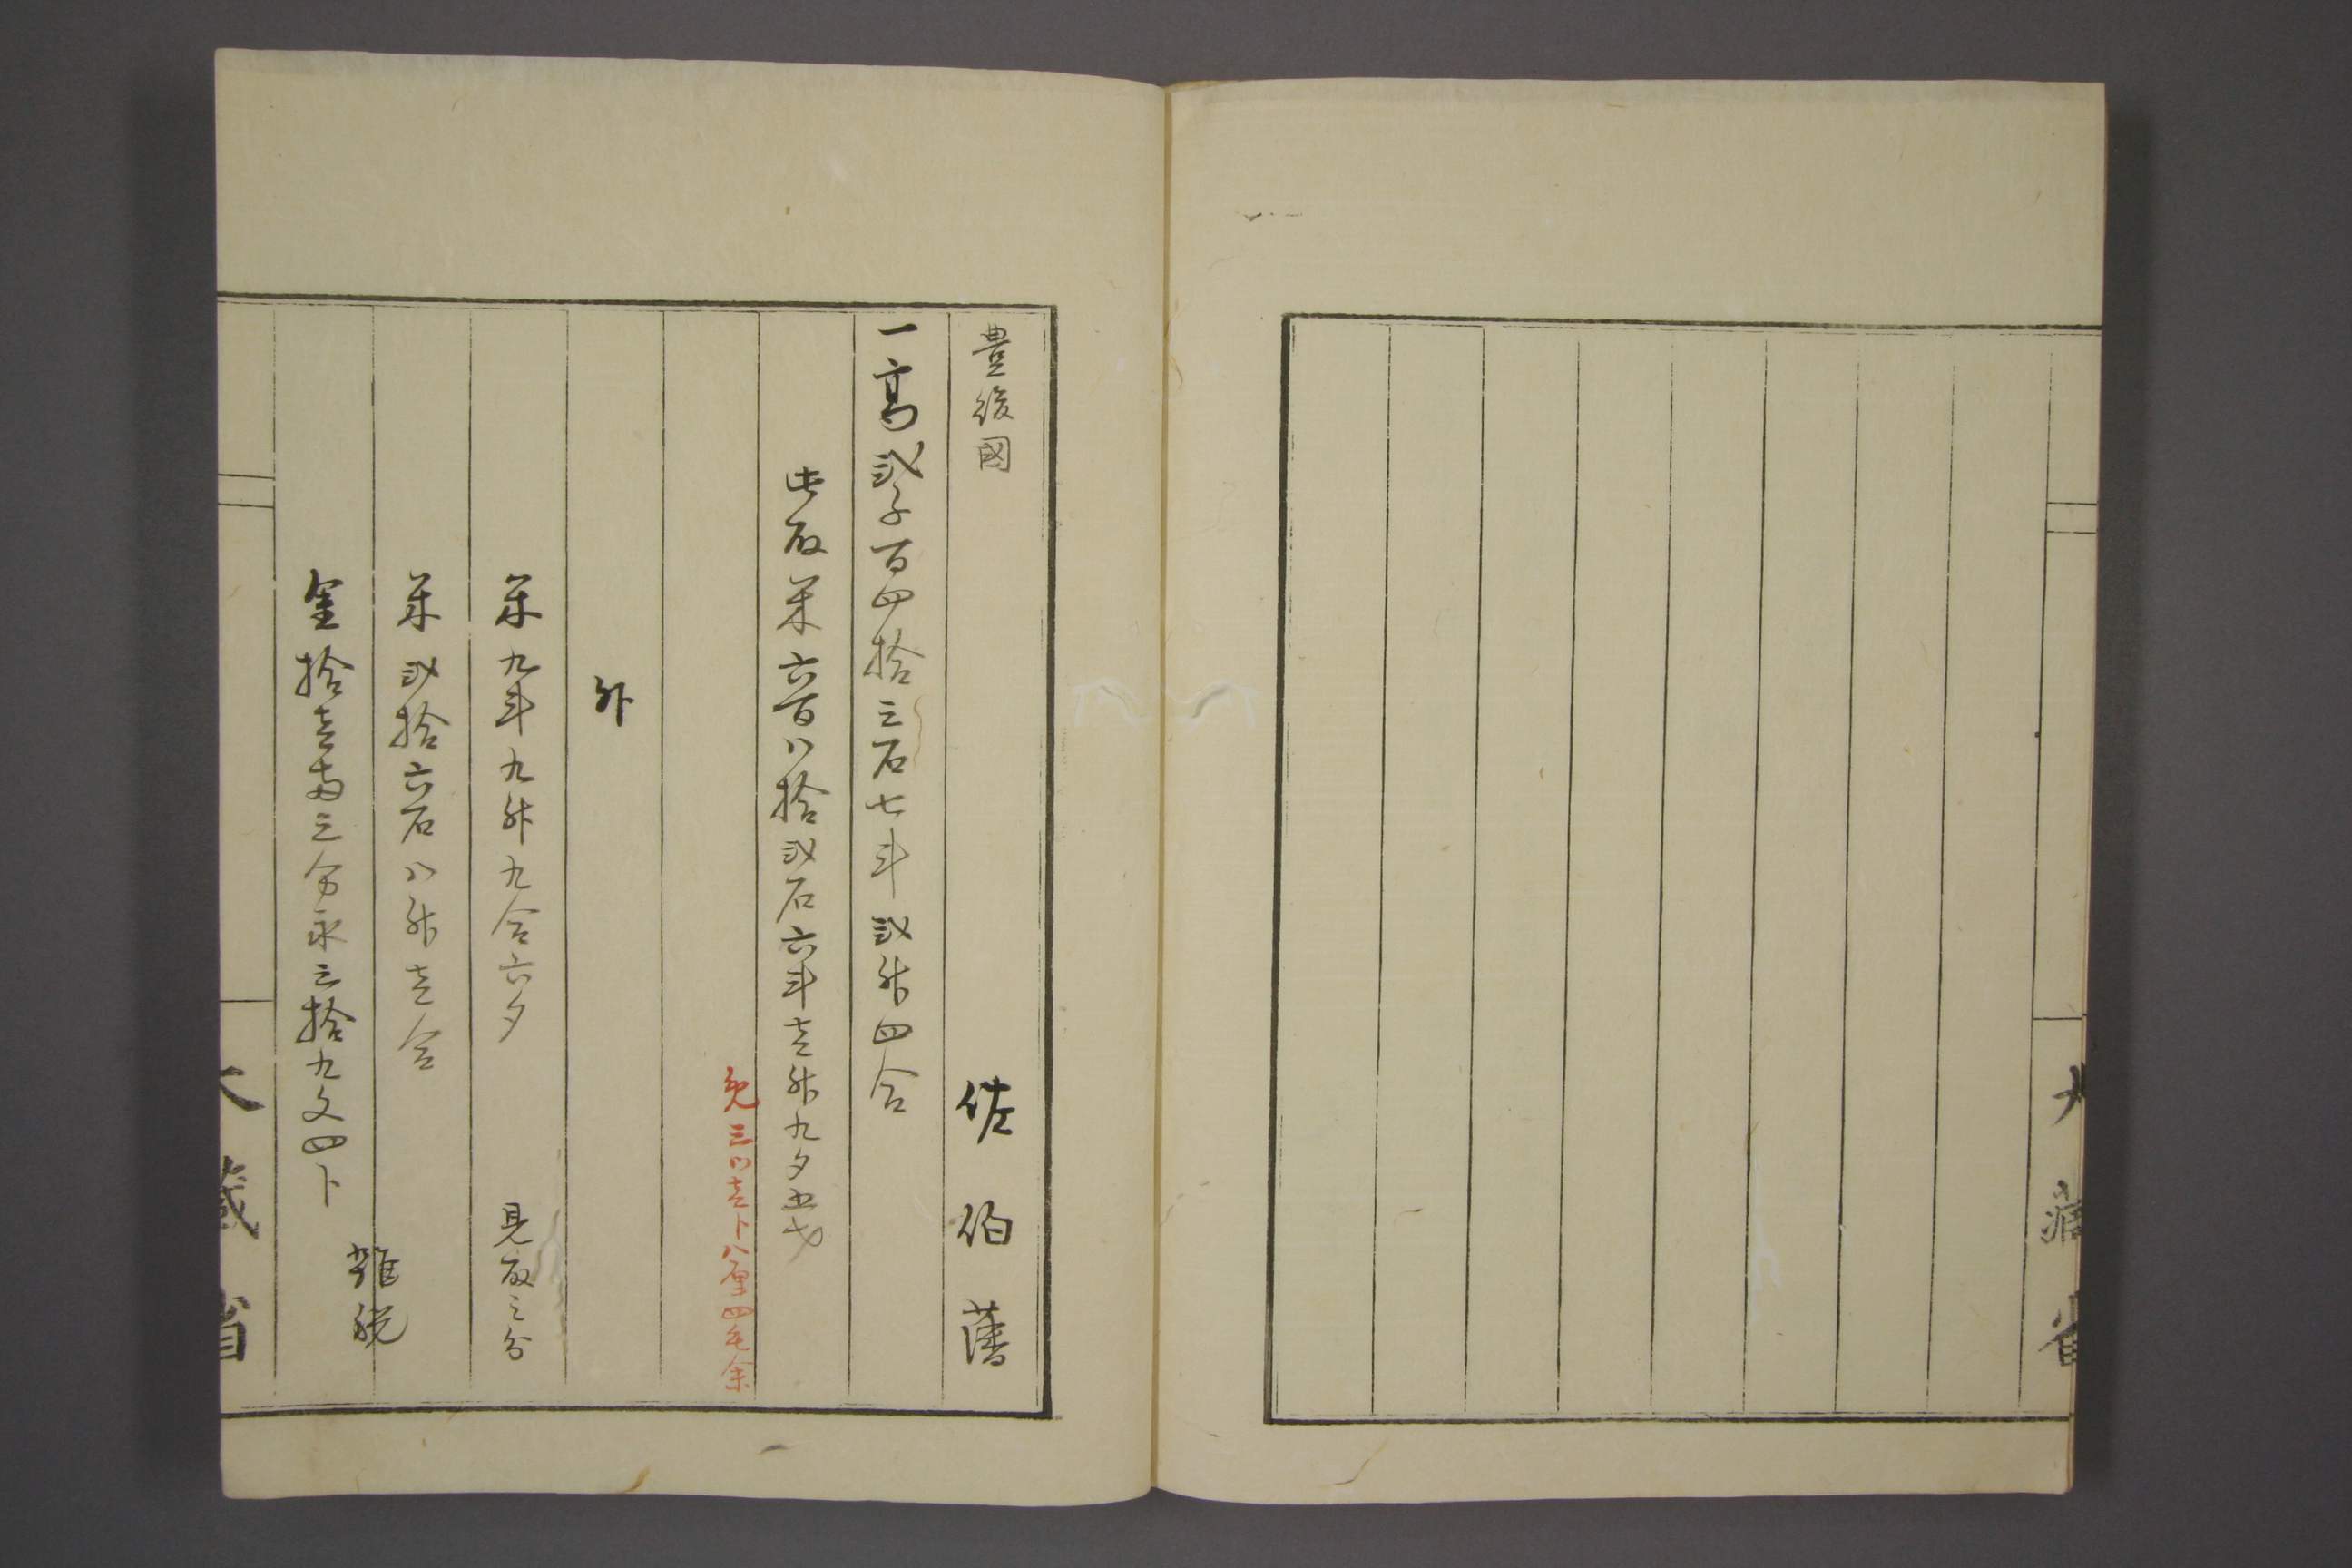 大藏省
豊後國　佐伯藩
一高弐千百四拾三石七斗弐升四合
此取米六百八拾弐石六斗壱升九夕五才
免三ツ壱卜八厘四毛余
外
米九斗九升九合六夕　見取之分
米弐拾六石八升壱合
金拾壱両三分永三拾九文四卜
雑税
大藏省